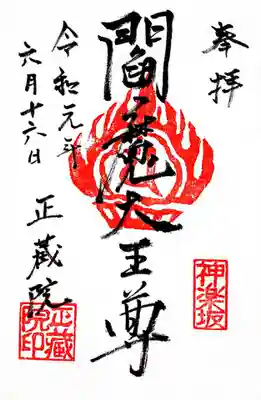 奉拝
神楽坂
閻魔大王尊
令和元年
六月十六日
正蔵院
正蔵院印